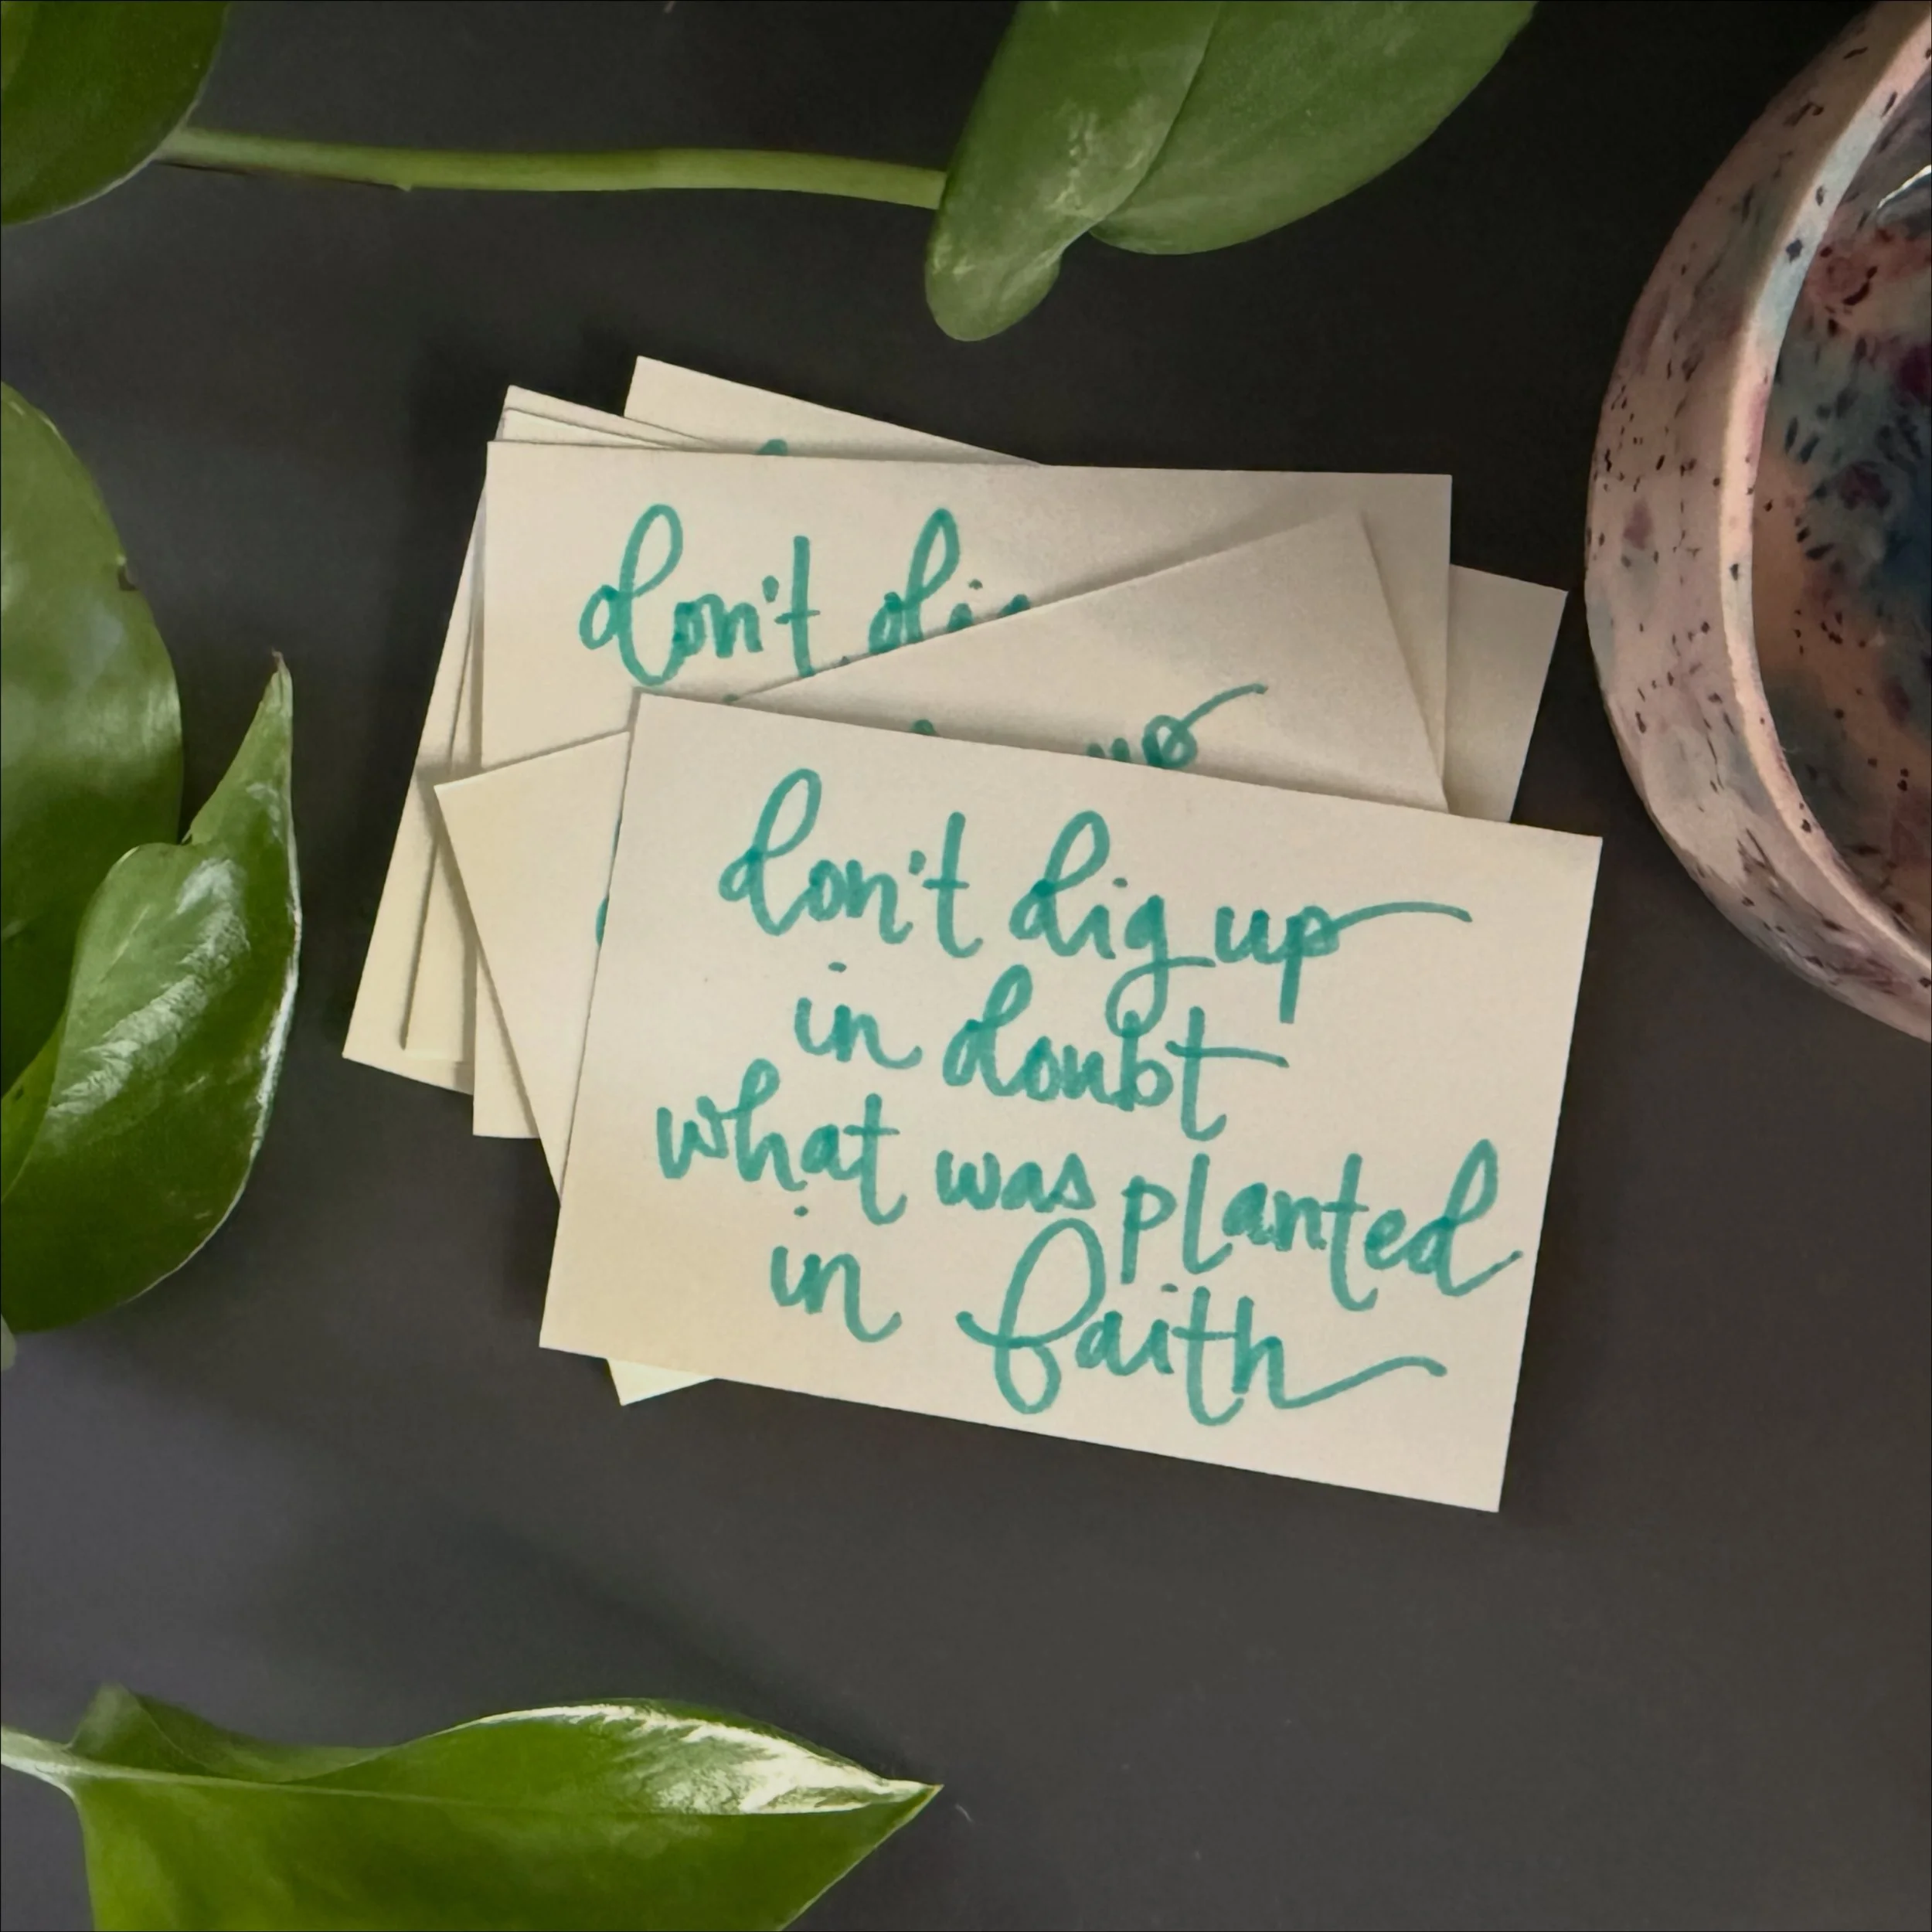 don't
up
don't dig up
in doubt
what was planted
in faith